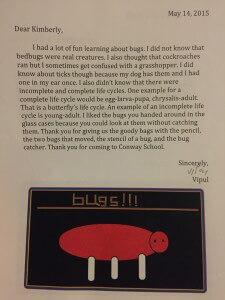 May 14, 2015
Dear Kimberly,
I had a lot of fun learning about bugs. I did not know that
bedbugs were real creatures. I also thought that cockroaches
ran but I sometimes get confused with a grasshopper. I did
know about ticks though because my dog has them and I had
one in my ear once. I also didn't know that there were
incomplete and complete life cycles. One example for a
complete life cycle would be egg-larva-pupa, chrysalis-adult.
That is a butterfly's life cycle. An example of an incomplete life
cycle is young-adult. I liked the bugs you handed around in the
glass cases because you could look at them without catching
them. Thank you for giving us the goody bags with the pencil,
the two bugs that moved, the stencil of a bug, and the bug
catcher. Thank you for coming to Conway School.
Sincerely,
Vipul
Vipul
bugs!!!